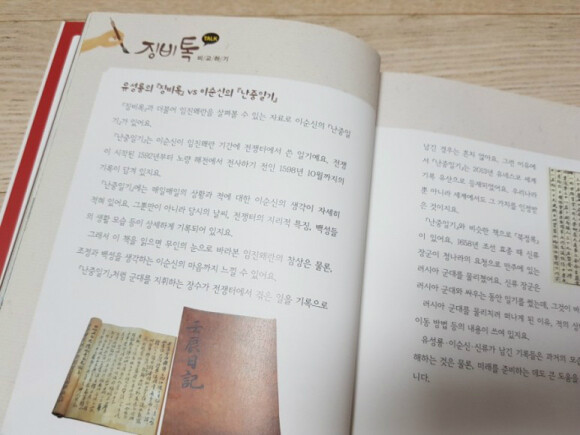 징비톡
TALK
유성룡의 『징비록』 vs 이순신의 『난중일기』
『징비록』과 더불어 임진왜란을 살펴볼 수 있는 자료로 이순신의 『난중일
기』가 있어요.
『난중일기』는 이순신이 임진왜란 기간에 전쟁터에서 쓴 일기예요. 전쟁
이 시작된 1592년부터 노량 해전에서 전사하기 전인 1598년 10월까지의
기록이 담겨 있지요.
『난중일기』에는 매일매일의 상황과 적에 대한 이순신의 생각이 자세히
적혀 있어요. 그뿐만이 아니라 당시의 날씨, 전쟁터의 지리적 특징, 백성들
의 생활 모습 등이 상세하게 기록되어 있지요.
그래서 이 책을 읽으면 무인의 눈으로 바라본 임진왜란의 참상은 물론,
조정과 백성을 생각하는 이순신의 마음까지 느낄 수 있어요.
『난중일기』처럼 군대를 지휘하는 장수가 전쟁터에서 겪은 일을 기록으로
壬辰日記
남긴 경우는 흔치 않아요. 그런 이유에
서 『난중일기』는 2013년 유네스코 세계
기록 유산으로 등재되었어요. 우리나라
뿐 아니라 세계에서도 그 가치를 인정받
은 것이지요.
『난중일기』와 비슷한 책으로 『북정록』
이 있어요. 1658년 조선 효종 때 신류
장군이 청나라의 요청으로 만주에 있는
러시아 군대를 물리쳤어요. 신류 장군은
러시아 군대와 싸우는 동안 일기를 썼는데, 그것이 바
러시아 군대를 물리치러 떠나게 된 이유, 적의 상
이동 방법 등의 내용이 쓰여 있지요.
유성룡·이순신·신류가 남긴 기록들은 과거의 모습
해하는 것은 물론, 미래를 준비하는 데도 큰 도움을
니다.